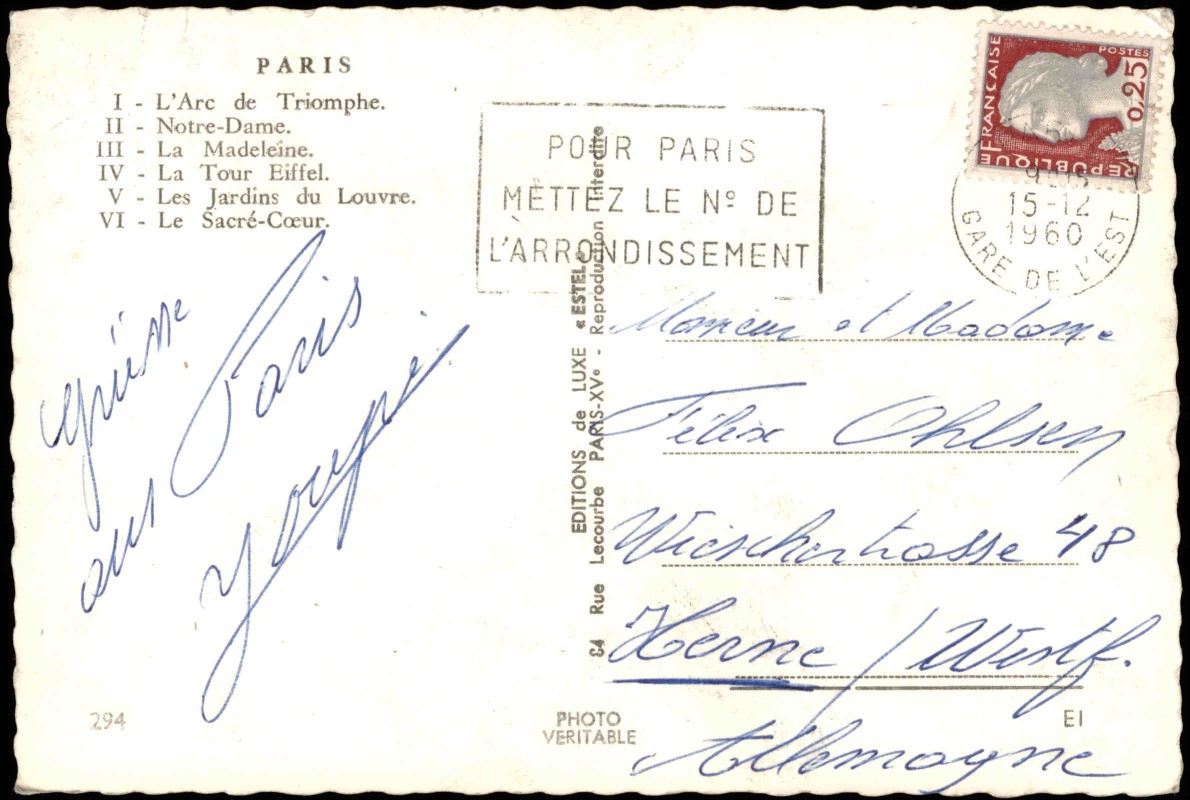 PARIS
I - L'Arc de Triomphe.
II - Notre-Dame.
III - La Madeleine.
IV - La Tour Eiffel.
V - Les Jardins du Louvre.
VI - Le Sacré-Cœur.
POUR PARIS
METTEZ LE Nº DE
L'ARRONDISSEMENT
REPUBLIQUE FRANÇAISE
POSTES
0,25
15-12
1960
GARE DE L'EST
Grüsse
aus Paris
EDITIONS de LUXE « ESTEL »
64 Rue Lecourbe PARIS-XVe - Reproduction Interdite
Monsieur et Madame
Félix Ohlsen
Wiescherstrasse 48
Herne / Westf.
Allemagne
294
PHOTO
VERITABLE
EI